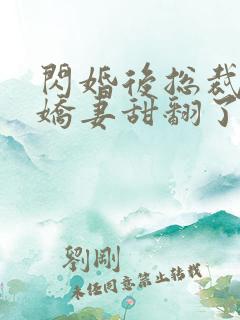 閃婚後总裁
嬌妻甜翻了
劉剛
未经同意禁止转载